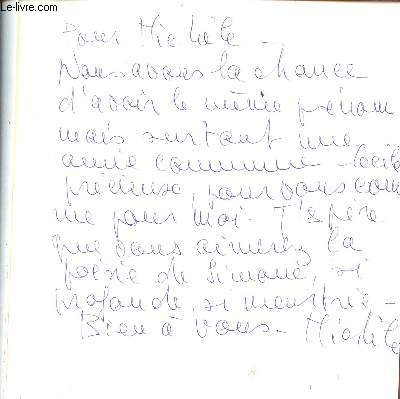 Le-livre.com
Pour Michèle -
Nous avons la chance
d'avoir le même prénom
mais surtout une
amie commune - Cécile
précieuse, pour vous com
me pour moi. J'espère
que vous aimerez la
poésie de Simone, si
profonde, si meurtrie -
Bien à vous - Michèle